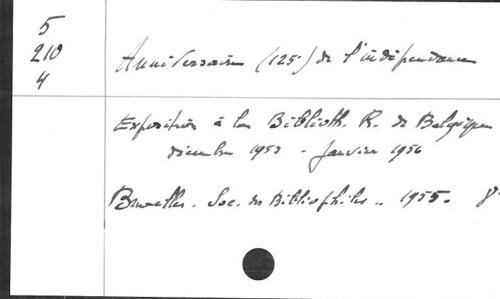 5
210
4
Anniversaire (125) de l'indépendance
Exposition à la Biblioth. R. de Belgique
décembre 1955 - Janvier 1956
Bruxelles. Soc. des Bibliophiles.. 1955. 8°